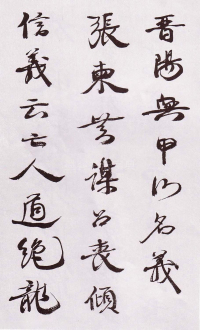 晋陽無甲以名義
張東
謀呂喪傾
信義云亡人道絶龍